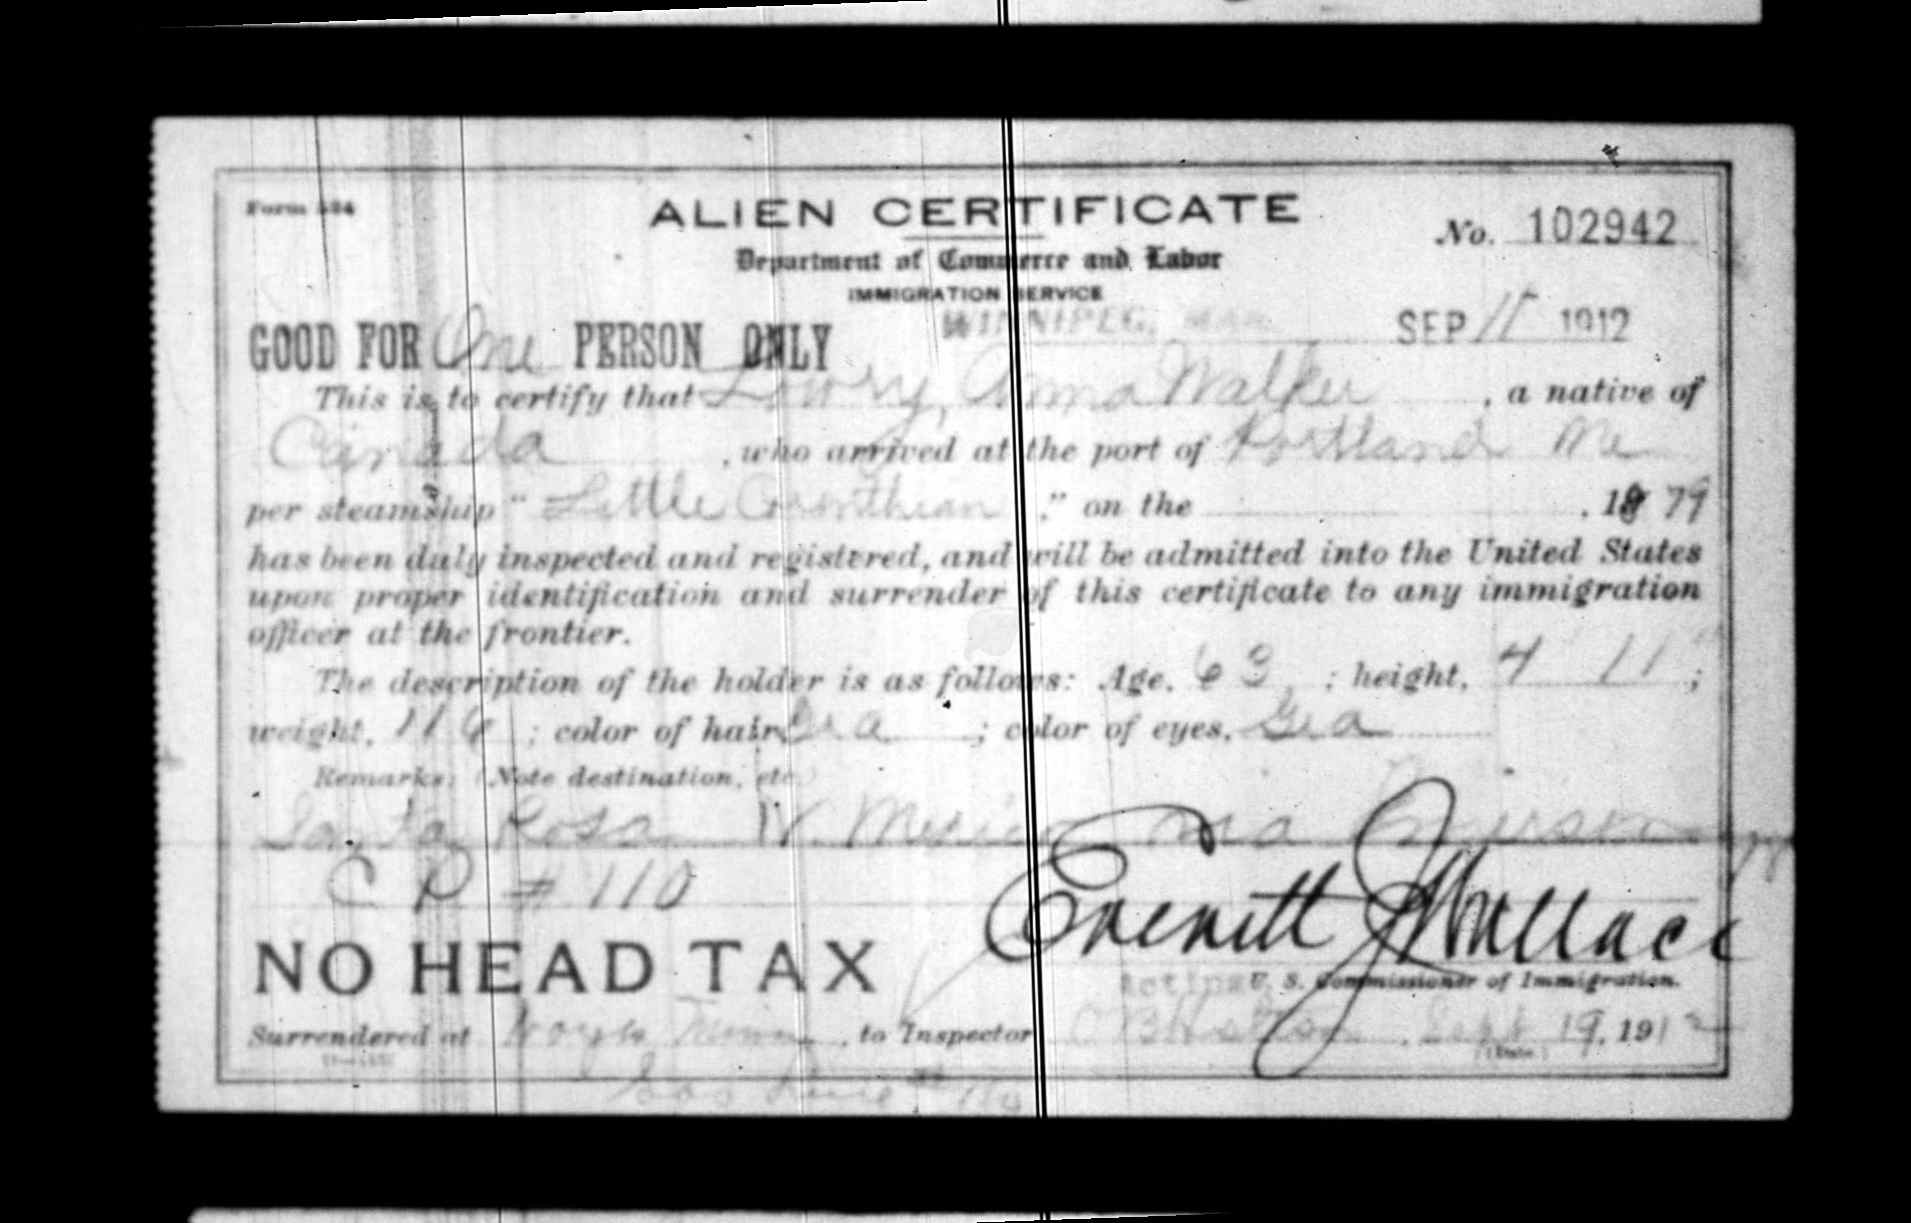 ALIEN CERTIFICATE
No. 102942
Department of Commerce and Labor
IMMIGRATION SERVICE
WINNIPEG, MAN. SEP 11 1912
GOOD FOR One PERSON ONLY
This is to certify that Lowry, Anna Walker, a native of
Canada, who arrived at the port of Portland Me
per steamship "Little Corinthian" on the , 1879
has been duly inspected and registered, and will be admitted into the United States
upon proper identification and surrender of this certificate to any immigration
officer at the frontier.
The description of the holder is as follows: Age, 63; height, 4 11";
weight, 116; color of hair Gra; color of eyes, Gra
Remarks: (Note destination, etc.)
Santa Rosa N. Mexico via
C P # 110
Everett J Wallace
NO HEAD TAX
Acting U. S. Commissioner of Immigration.
Surrendered at Noyes Minn, to Inspector , Sept 19, 1912
(Date.)
Soo Line # 110